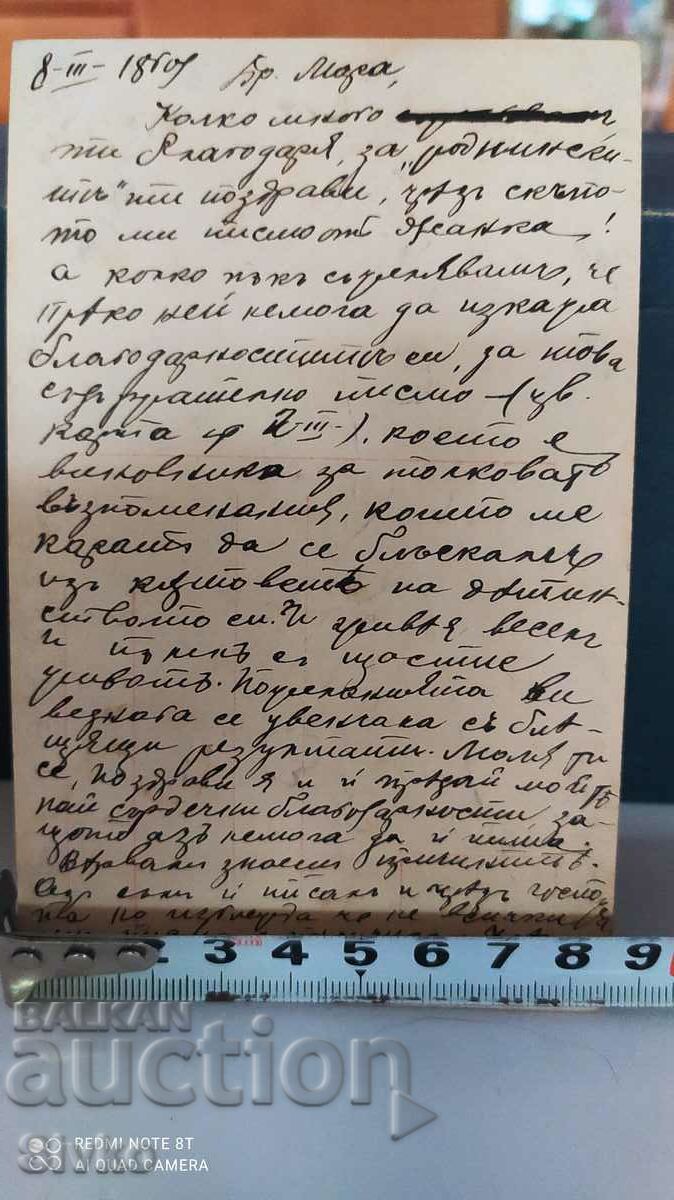 8-III-18 год Бр. Мара,
Колко много
ти благодаря, за "роднински-
тѣ" ти поздрави, чрезъ скъпо-
то ми писмо от Жанка!
а колко пъкъ съжелявамъ, че
прѣко ней немога да изкажа
благодарноститѣ си, за това
съдържателно писмо - (цв.
карта от 2-III-), което е
виновника за толковатъ
възпоменания, които ме
каратъ да се блъскамъ
изъ кѫтоветѣ на дѣтин-
ството си. И живѣя веселъ
и пъленъ съ щастие
животъ. Пожеланията ви
веднага се увенчаха съ блѣ-
щящи резултати. Моля ти
се, поздрави я и ѝ предай моитѣ
най сърдечни благодарности за-
щото азъ немога да ѝ пиша.
Вѣрвамъ знаеш причинитѣ.
съмъ ѝ писалъ и чрезъ госпо-
че не всички
2 3 4 5 6 7 8 9
BALKAN
auction
REDMI NOTE 8T
AI QUAD CAMERA
Sivko